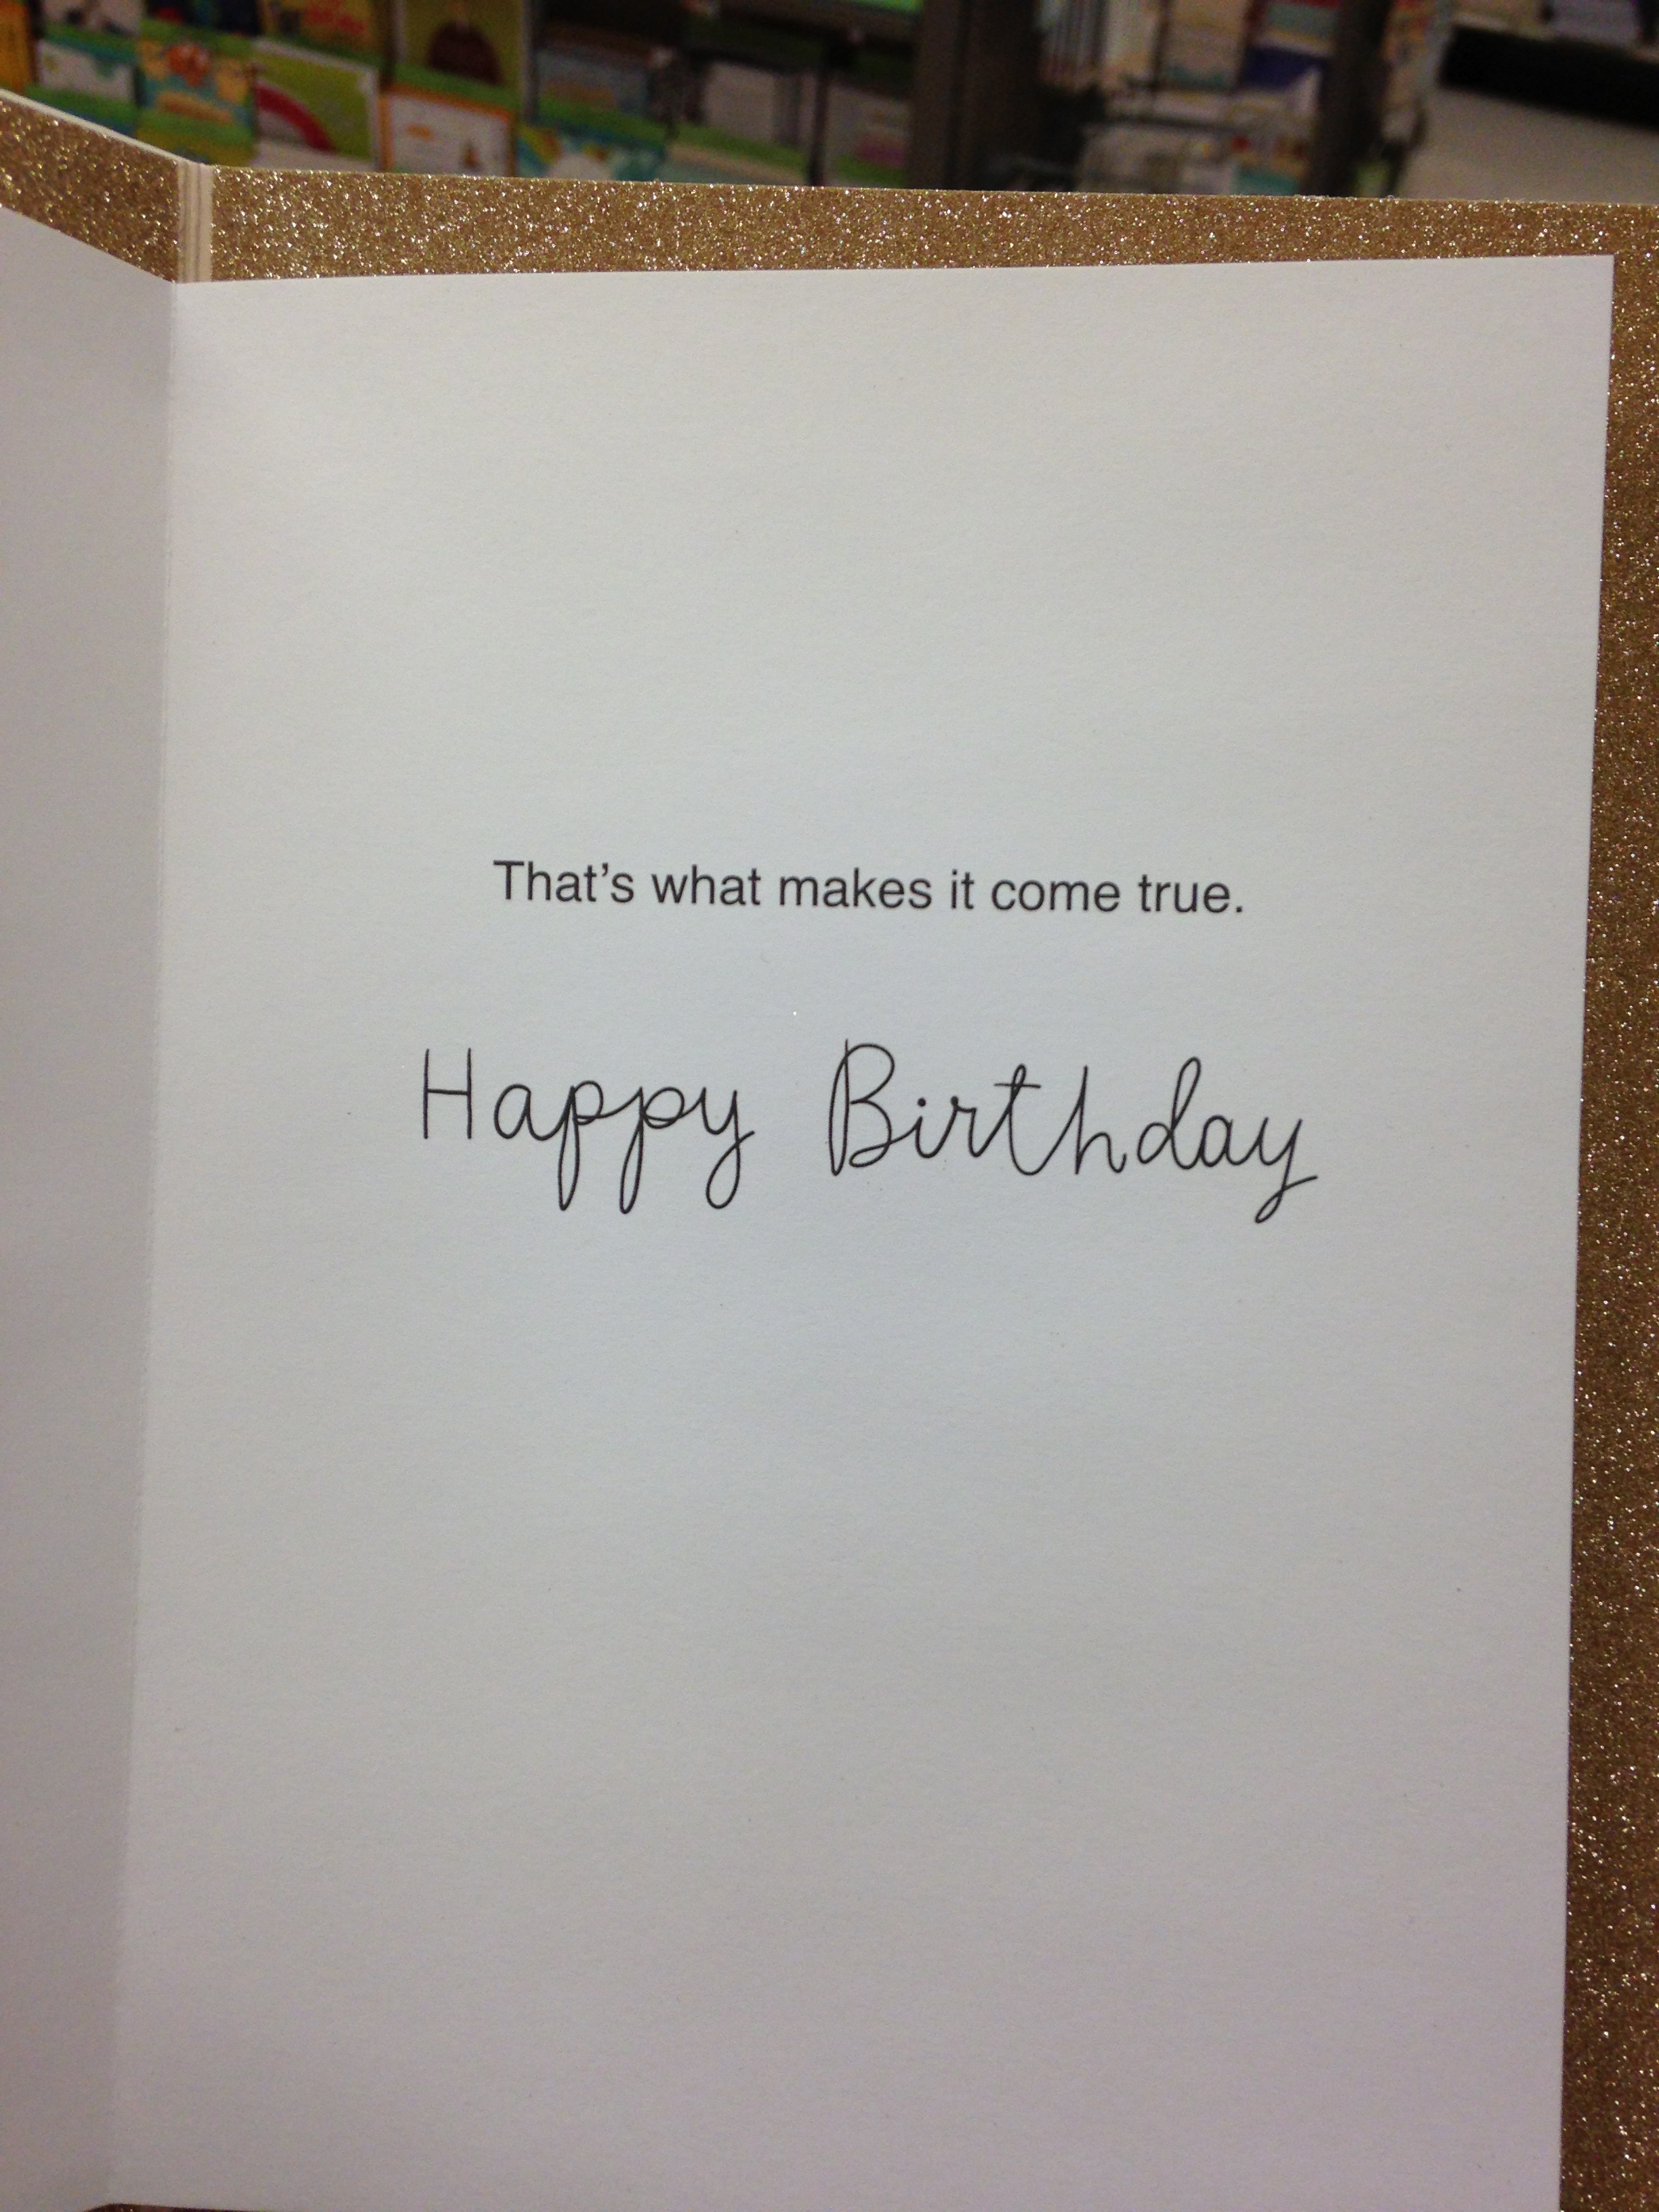 That’s what makes it come true.
Happy Birthday